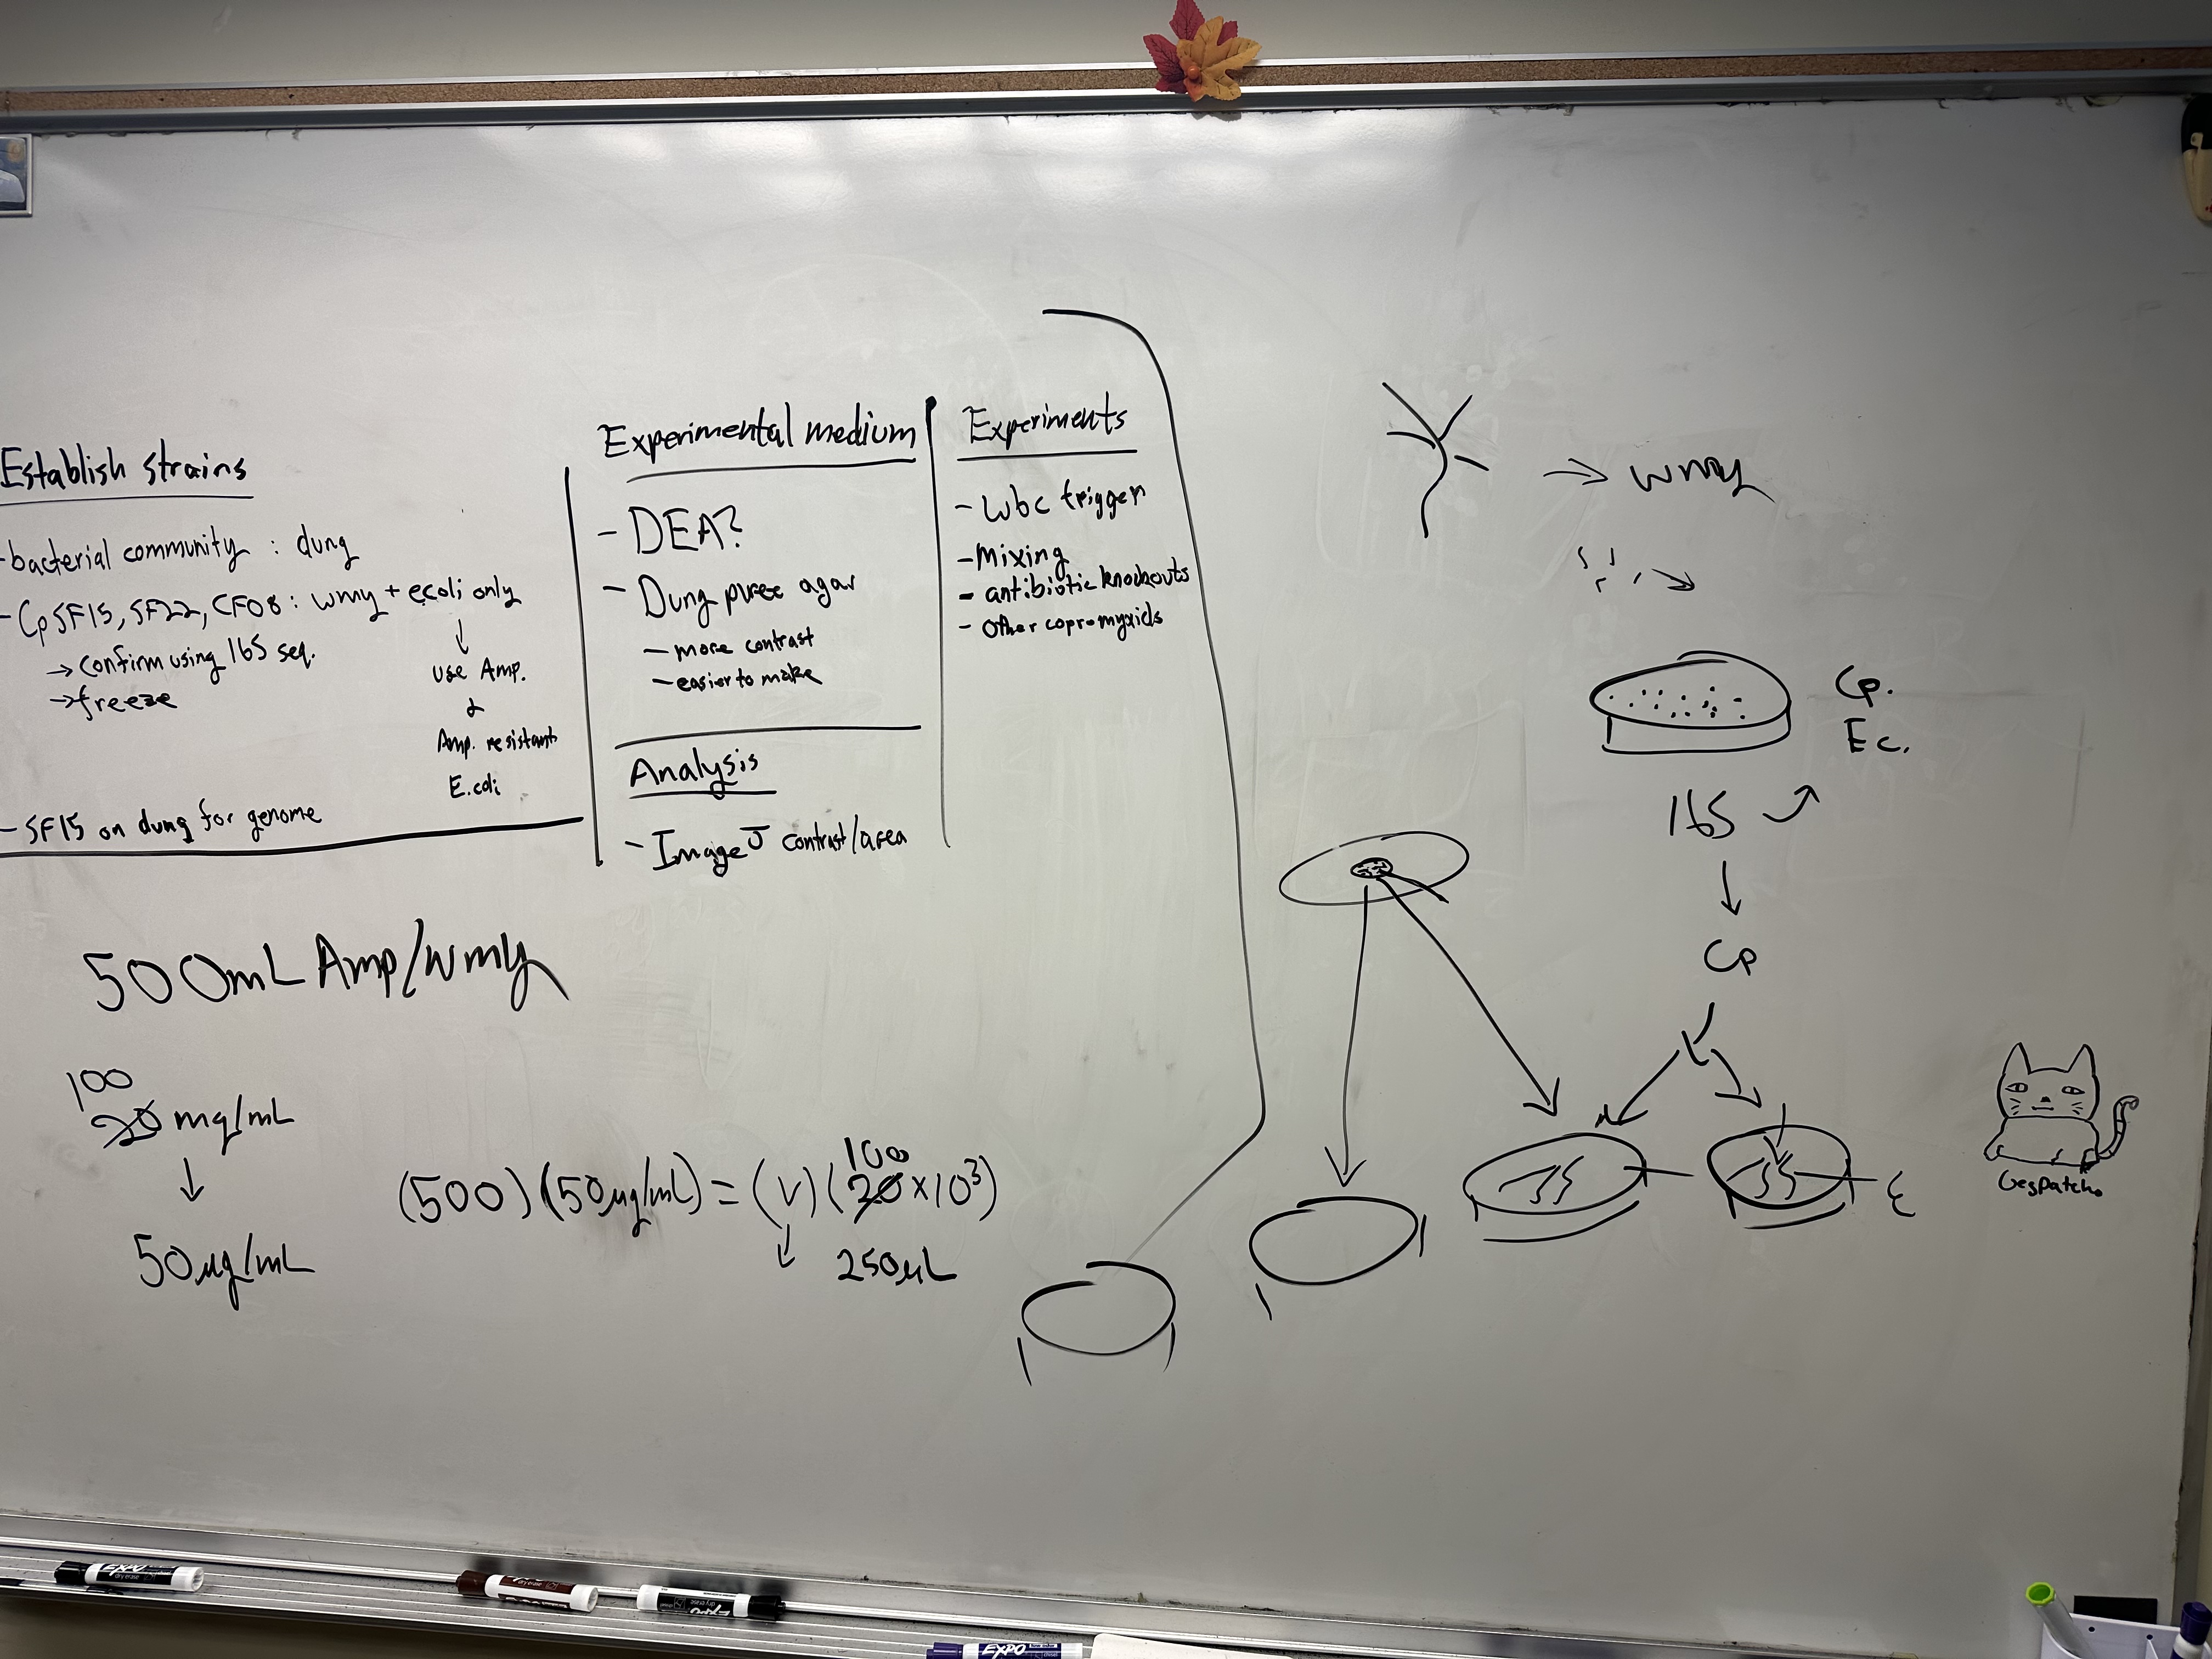 Establish strains
- bacterial community : dung
- Cp SF15, SF22, CF08 : wmy + ecoli only
→ confirm using 16S seq.
→ freeze
↓
use Amp.
&
Amp. resistant
E.coli
- SF15 on dung for genome
Experimental medium
- DEA?
- Dung puree agar
- more contrast
- easier to make
Analysis
- ImageJ contrast/area
Experiments
- Wbc trigger
- Mixing
- antibiotic knockouts
- Other copromyxids
500mL Amp/wmy
100
20 mg/mL
↓
50 µg/mL
100
(500)(50µg/mL) = (V)(20 x 10³)
↓ 250µL
→ wmy
Cp.
Ec.
16S
↓
Cp
EXPO
EXPO
EXPO